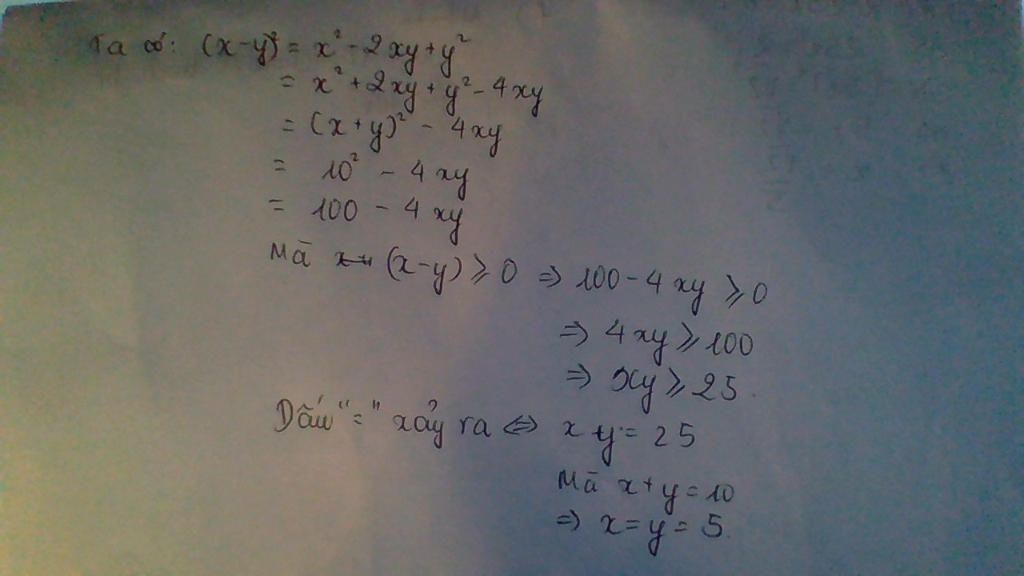 Ta có: (x-y)² = x² - 2xy + y²
= x² + 2xy + y² - 4xy
= (x+y)² - 4xy
= 10² - 4xy
= 100 - 4xy
Mà (x-y) ⩾ 0 ⇒ 100 - 4xy ⩾ 0
⇒ 4xy ⩾ 100
⇒ xy ⩾ 25
Dấu "=" xảy ra ⇔ x y = 25
Mà x+y = 10
⇒ x = y = 5